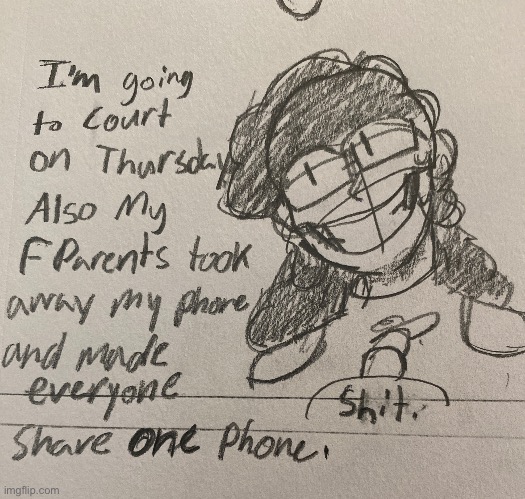 I'm going
to court
on Thursday
Also My
F Parents took
away my phone
and made
everyone
share one Phone.
Shit.
imgflip.com